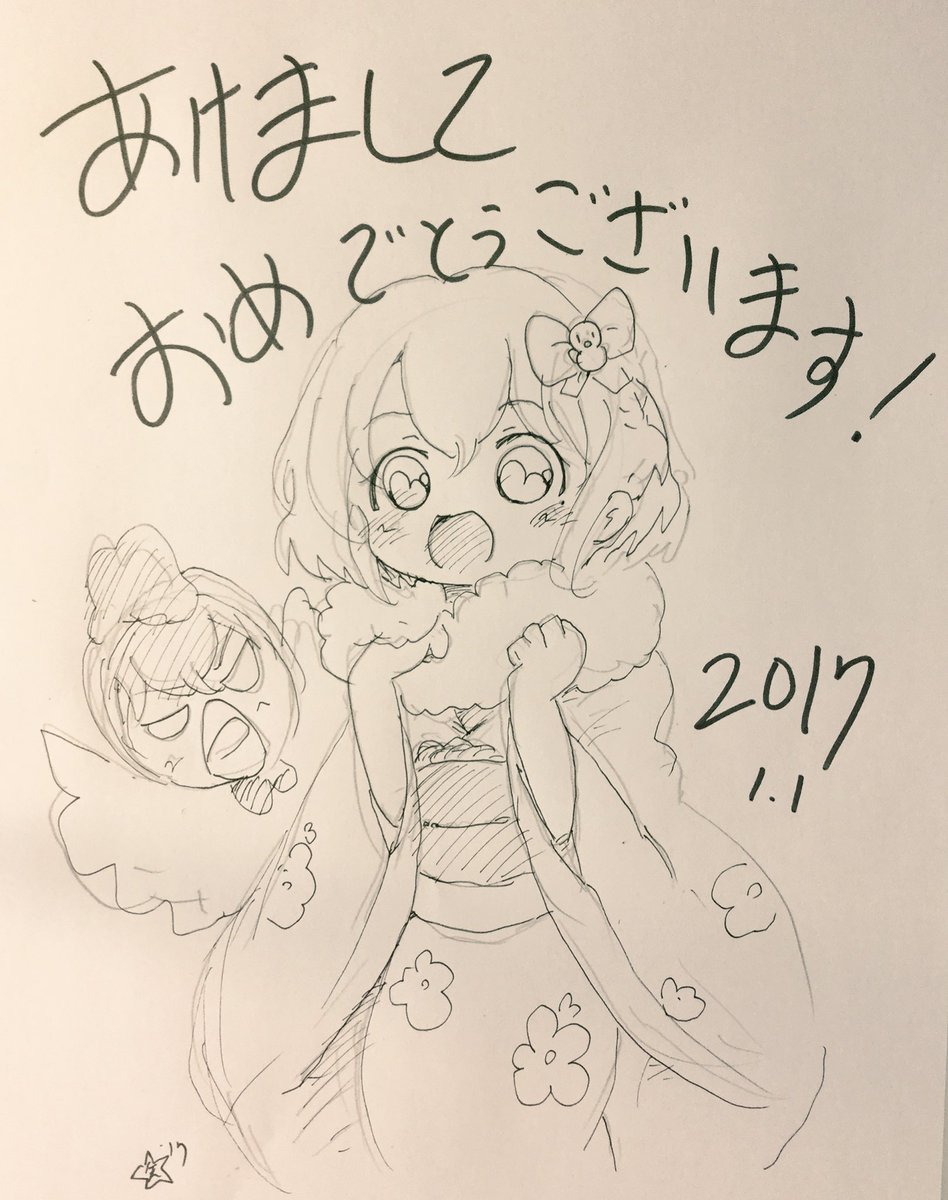 あけまして
おめでとうございます!
2017
1.1
'17